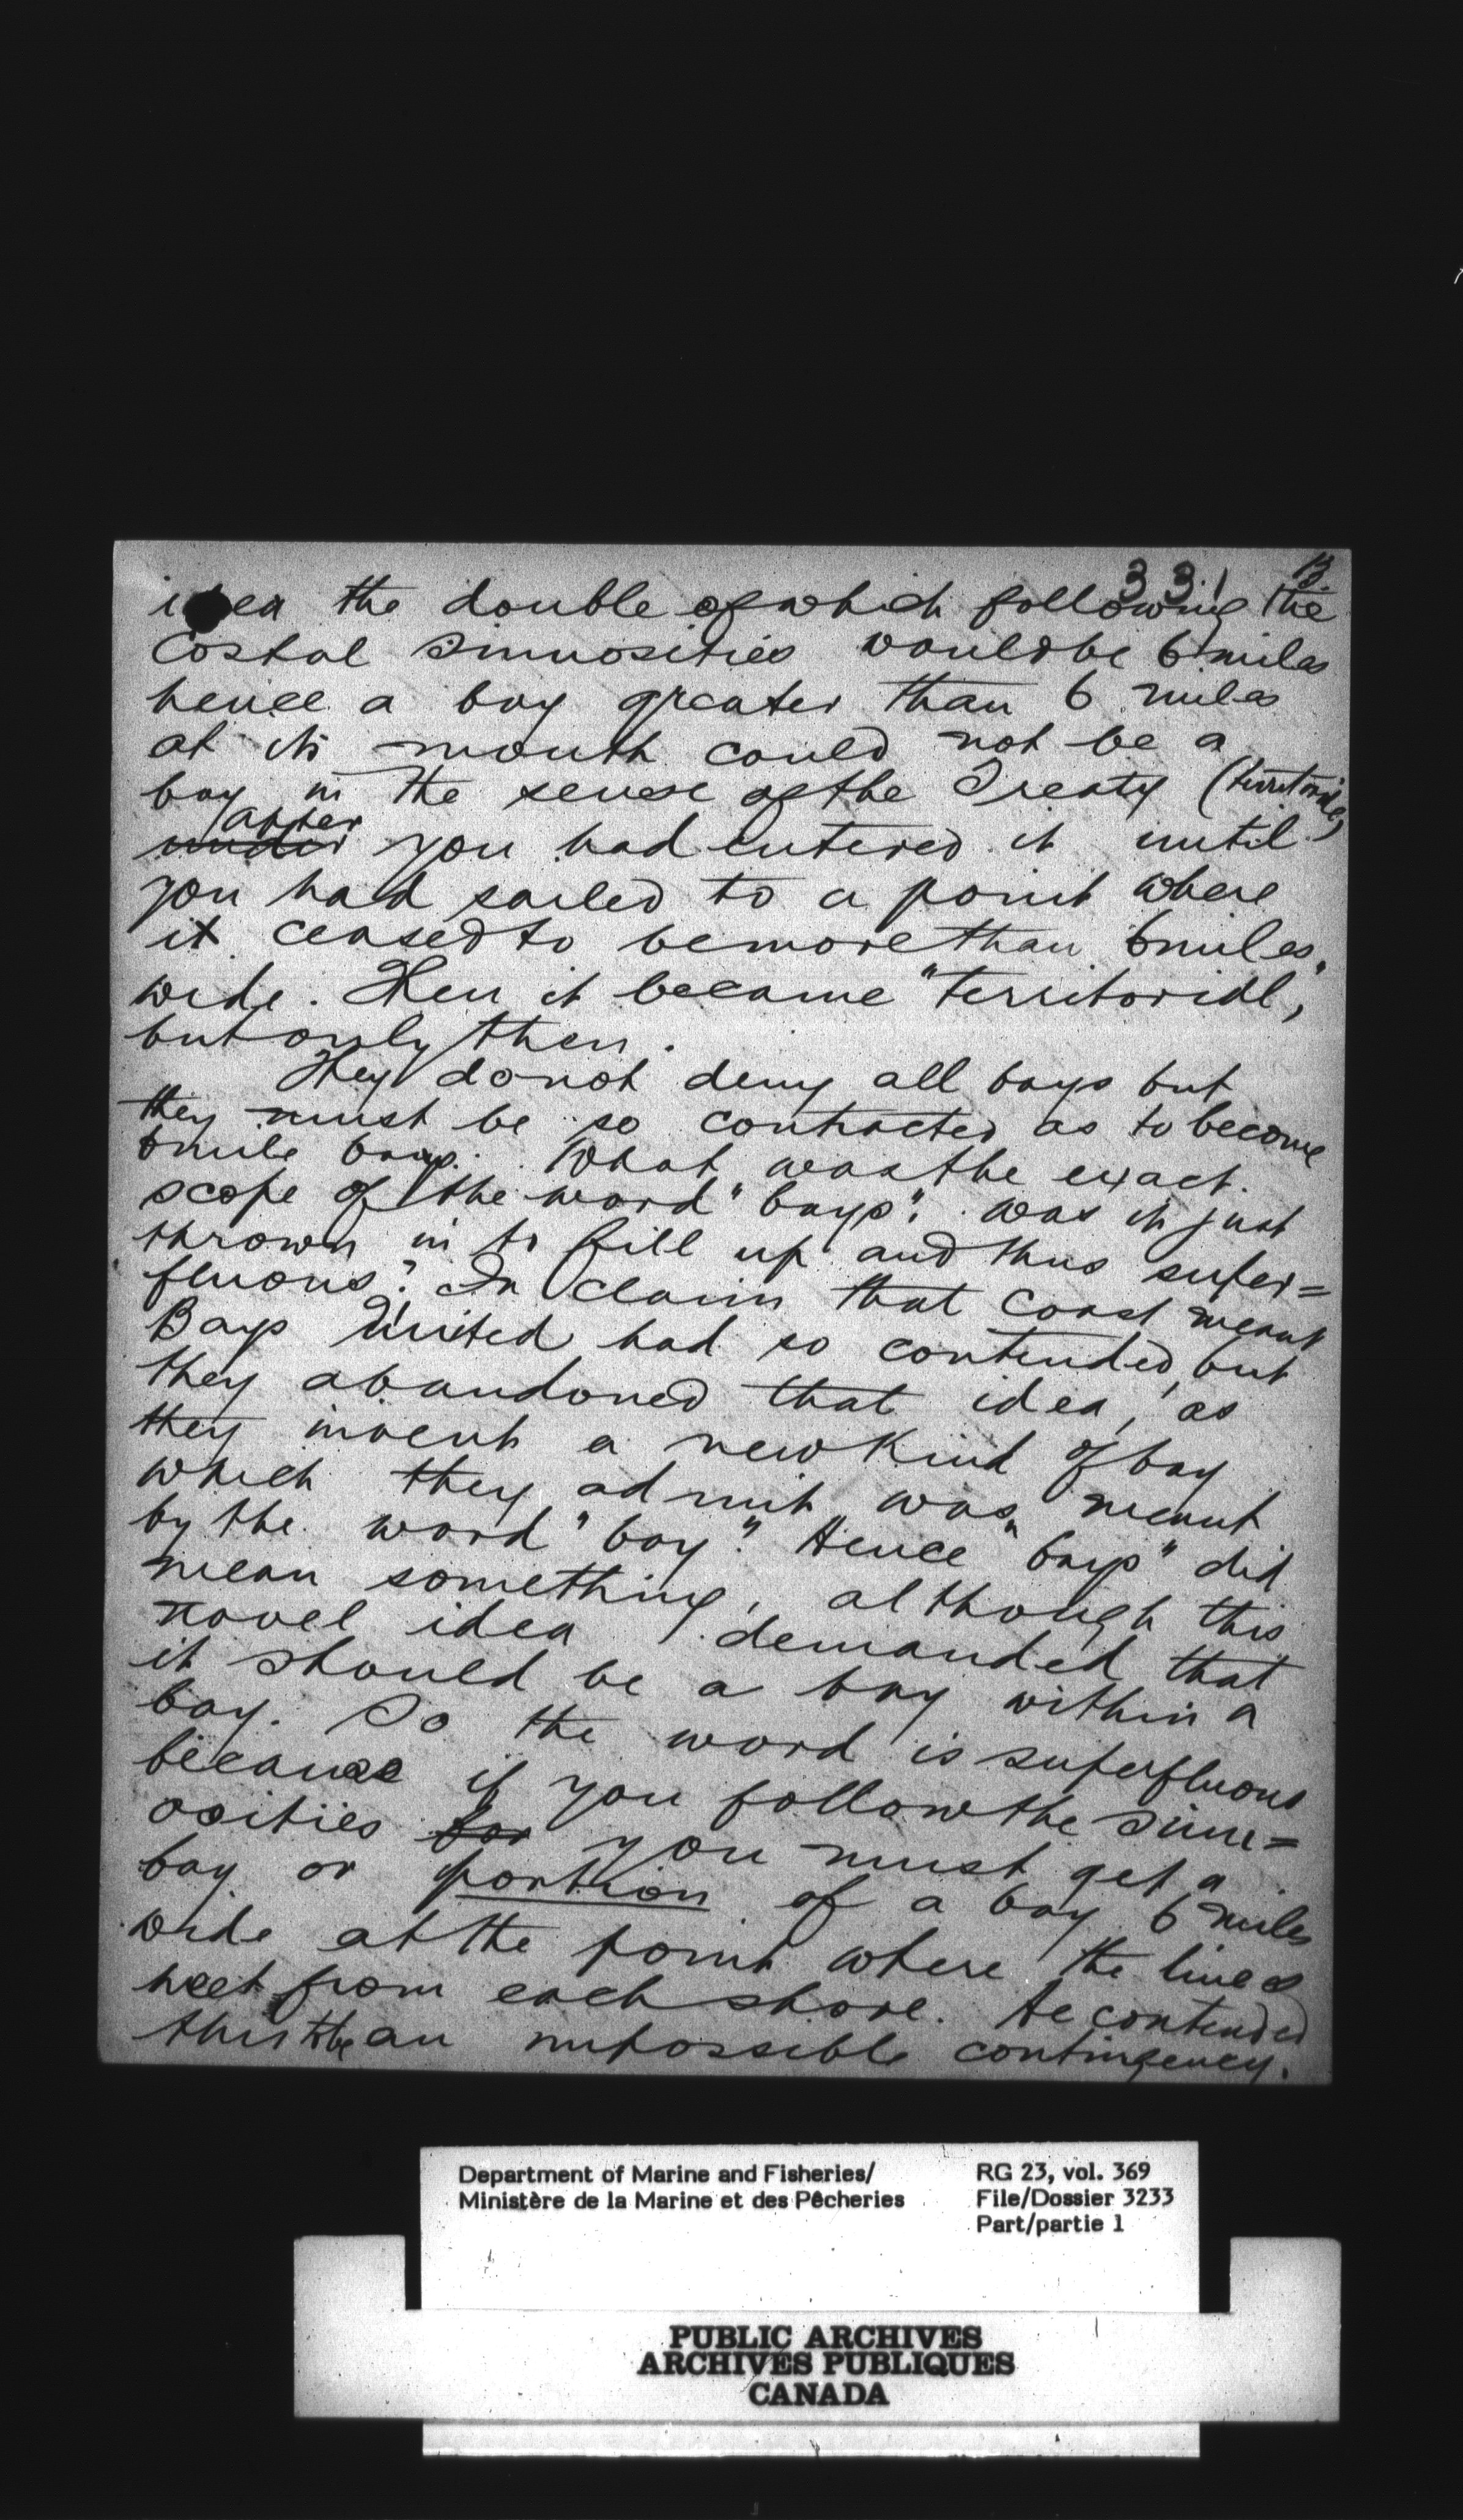 331
13
idea the double of which following the
Costal sinuosities would be 6 miles
hence a bay greater than 6 miles
at its mouth could not be a
bay in the sense of the Treaty (territorial,
after
under you had entered it until
you had sailed to a point where
it ceased to be more than 6 miles
wide. Then it became "territorial",
but only then.
They do not deny all bays but
they must be so contracted as to become
6 mile bays. What was the exact
scope of the word "bays". Was it just
thrown in to fill up and thus super=
fluous? In claim that coast meant
Bays United had so contended, but
they abandoned that idea, as
they invent a new kind of bay
which they admit was meant
by the word "bay". Hence "bays" did
mean something, although this
novel idea demanded that
it should be a bay within a
bay. So the word is superfluous
because if you follow the sinu=
osities for you must get a
bay or portion of a bay 6 miles
wide at the point where the lines
meet from each shore. He contended
this to be an impossible contingency.
Department of Marine and Fisheries/
Ministère de la Marine et des Pêcheries
RG 23, vol. 369
File/Dossier 3233
Part/partie 1
PUBLIC ARCHIVES
ARCHIVES PUBLIQUES
CANADA